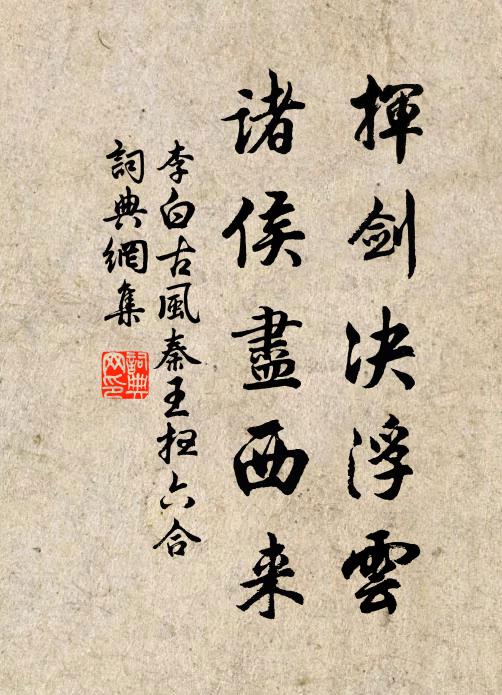 揮剑决浮雲
諸侯盡西来
李白古風秦王扫六合
詞典網集
詞典网印